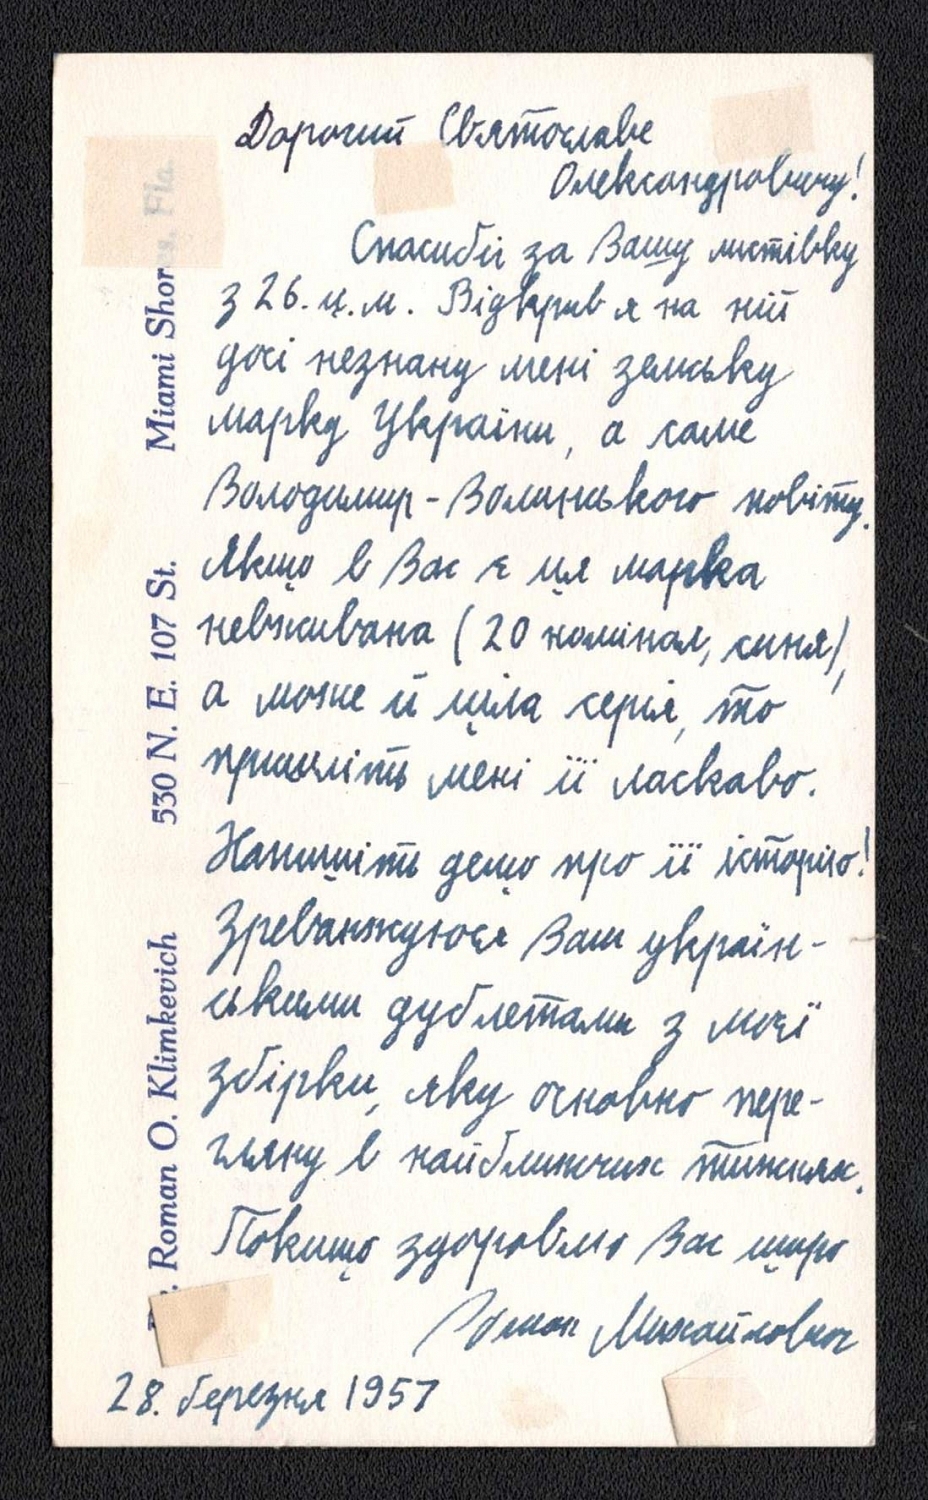 Дорогий Святославе
Олександровичу!
Спасибі за Вашу листівку
з 26. ц.м. Відкрив я на ній
досі незнану мені земську
марку України, а саме
Володимир-Волинського повіту.
Якщо в Вас є ця марка
невживана (20 номінал, синя),
а може й ціла серія, то
пришліть мені її ласкаво.
Напишіть дещо про її історію!
Зреванжуюся Вам україн-
ськими дублетами з моєї
збірки, яку основно пере-
гляну в найближчих тижнях.
Покищо здоровлю Вас щиро
Роман Михайлович
28. березня 1957
Roman O. Klimkevich 530 N. E. 107 St. Miami Shores, Fla.